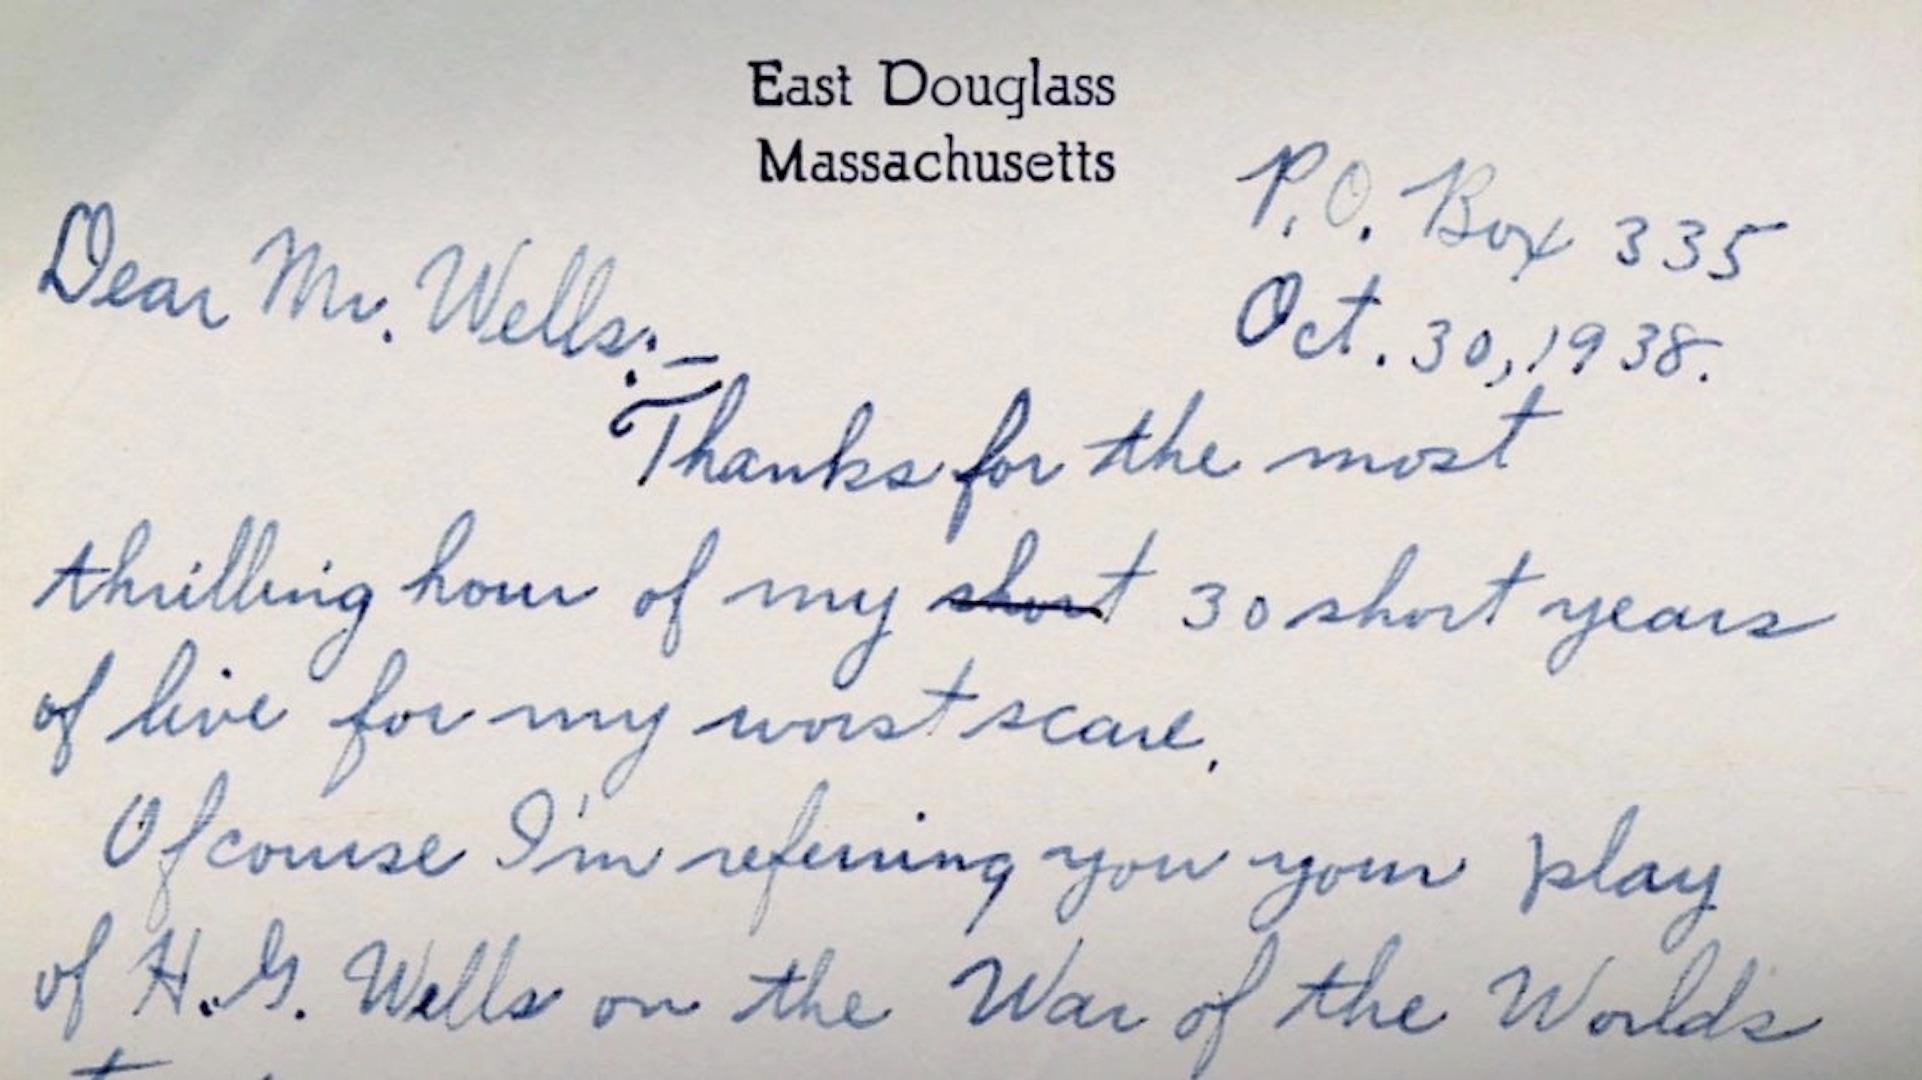 East Douglass
Massachusetts
P.O. Box 335
Oct. 30, 1938.
Dear Mr. Wells:-
Thanks for the most
thrilling hour of my short 30 short years
of live for my worst scare.
Ofcourse I'm referring you your play
of H.G. Wells on the War of the Worlds